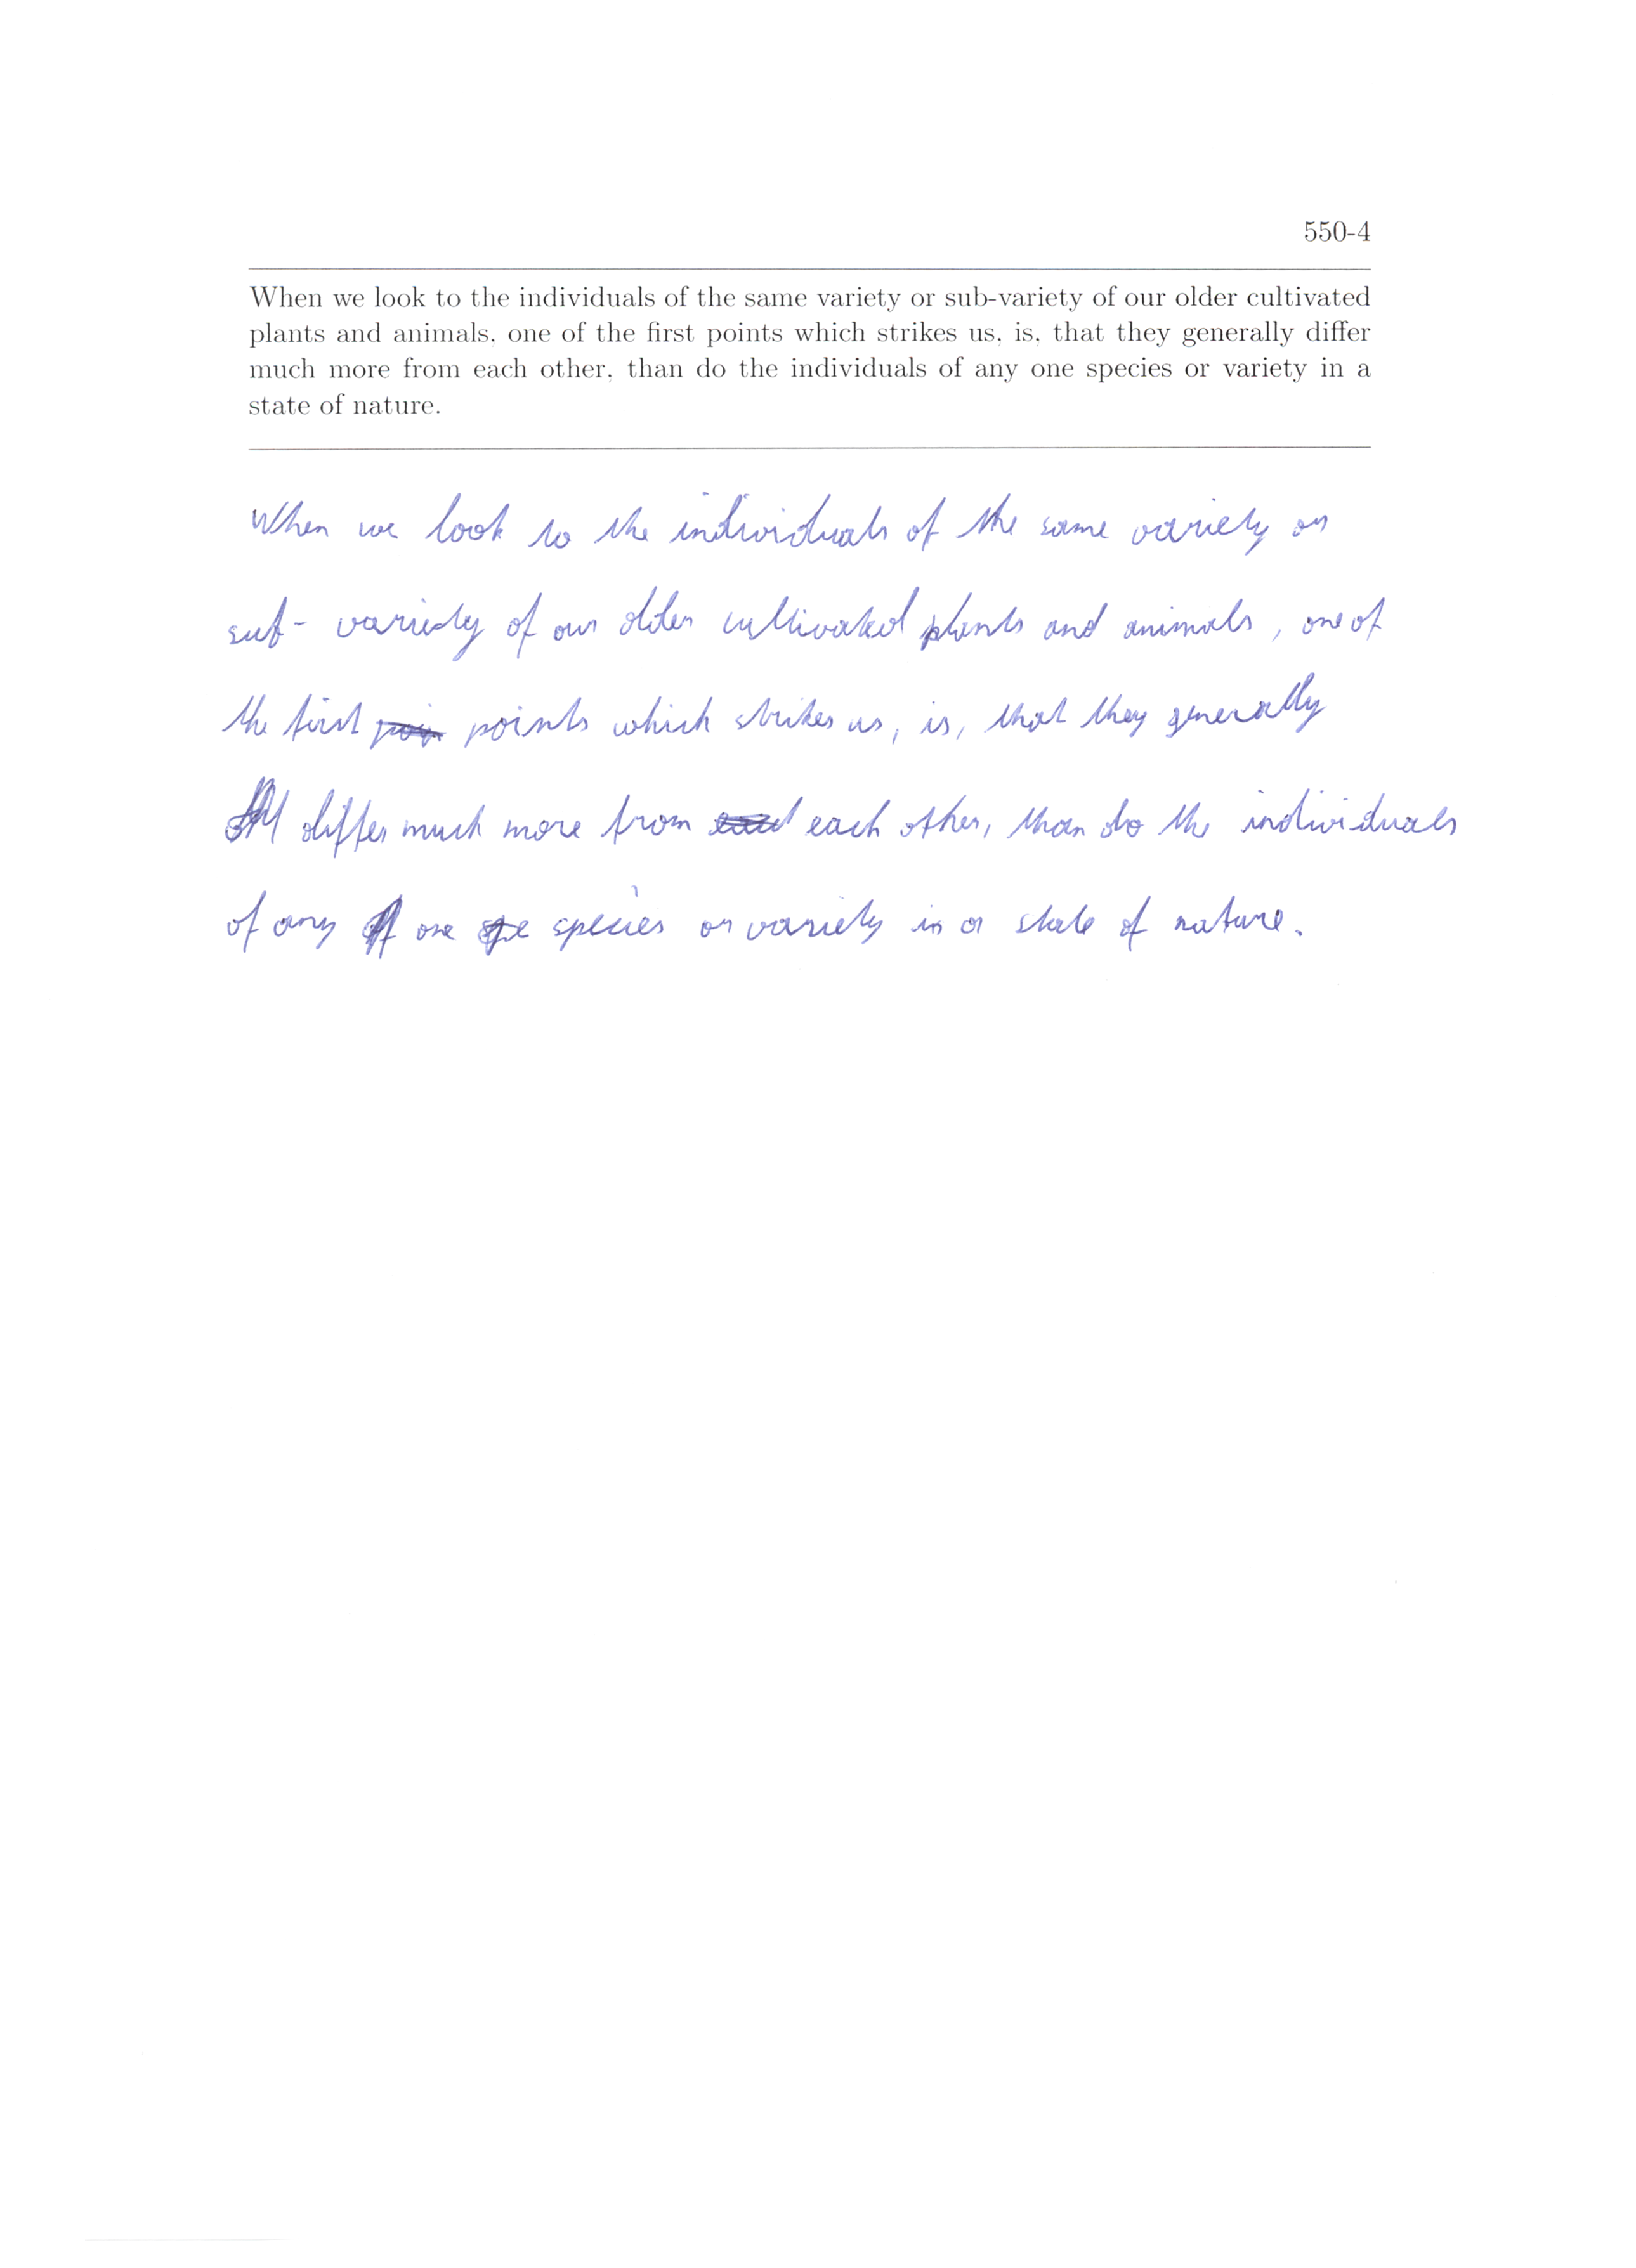 550-4
When we look to the individuals of the same variety or sub-variety of our older cultivated
plants and animals, one of the first points which strikes us, is, that they generally differ
much more from each other, than do the individuals of any one species or variety in a
state of nature.
When we look to the individuals of the same variety or
sub-variety of our older cultivated plants and animals, one of
the first points which strikes us, is, that they generally
differ much more from each other, than do the individuals
of any one species or variety in a state of nature.